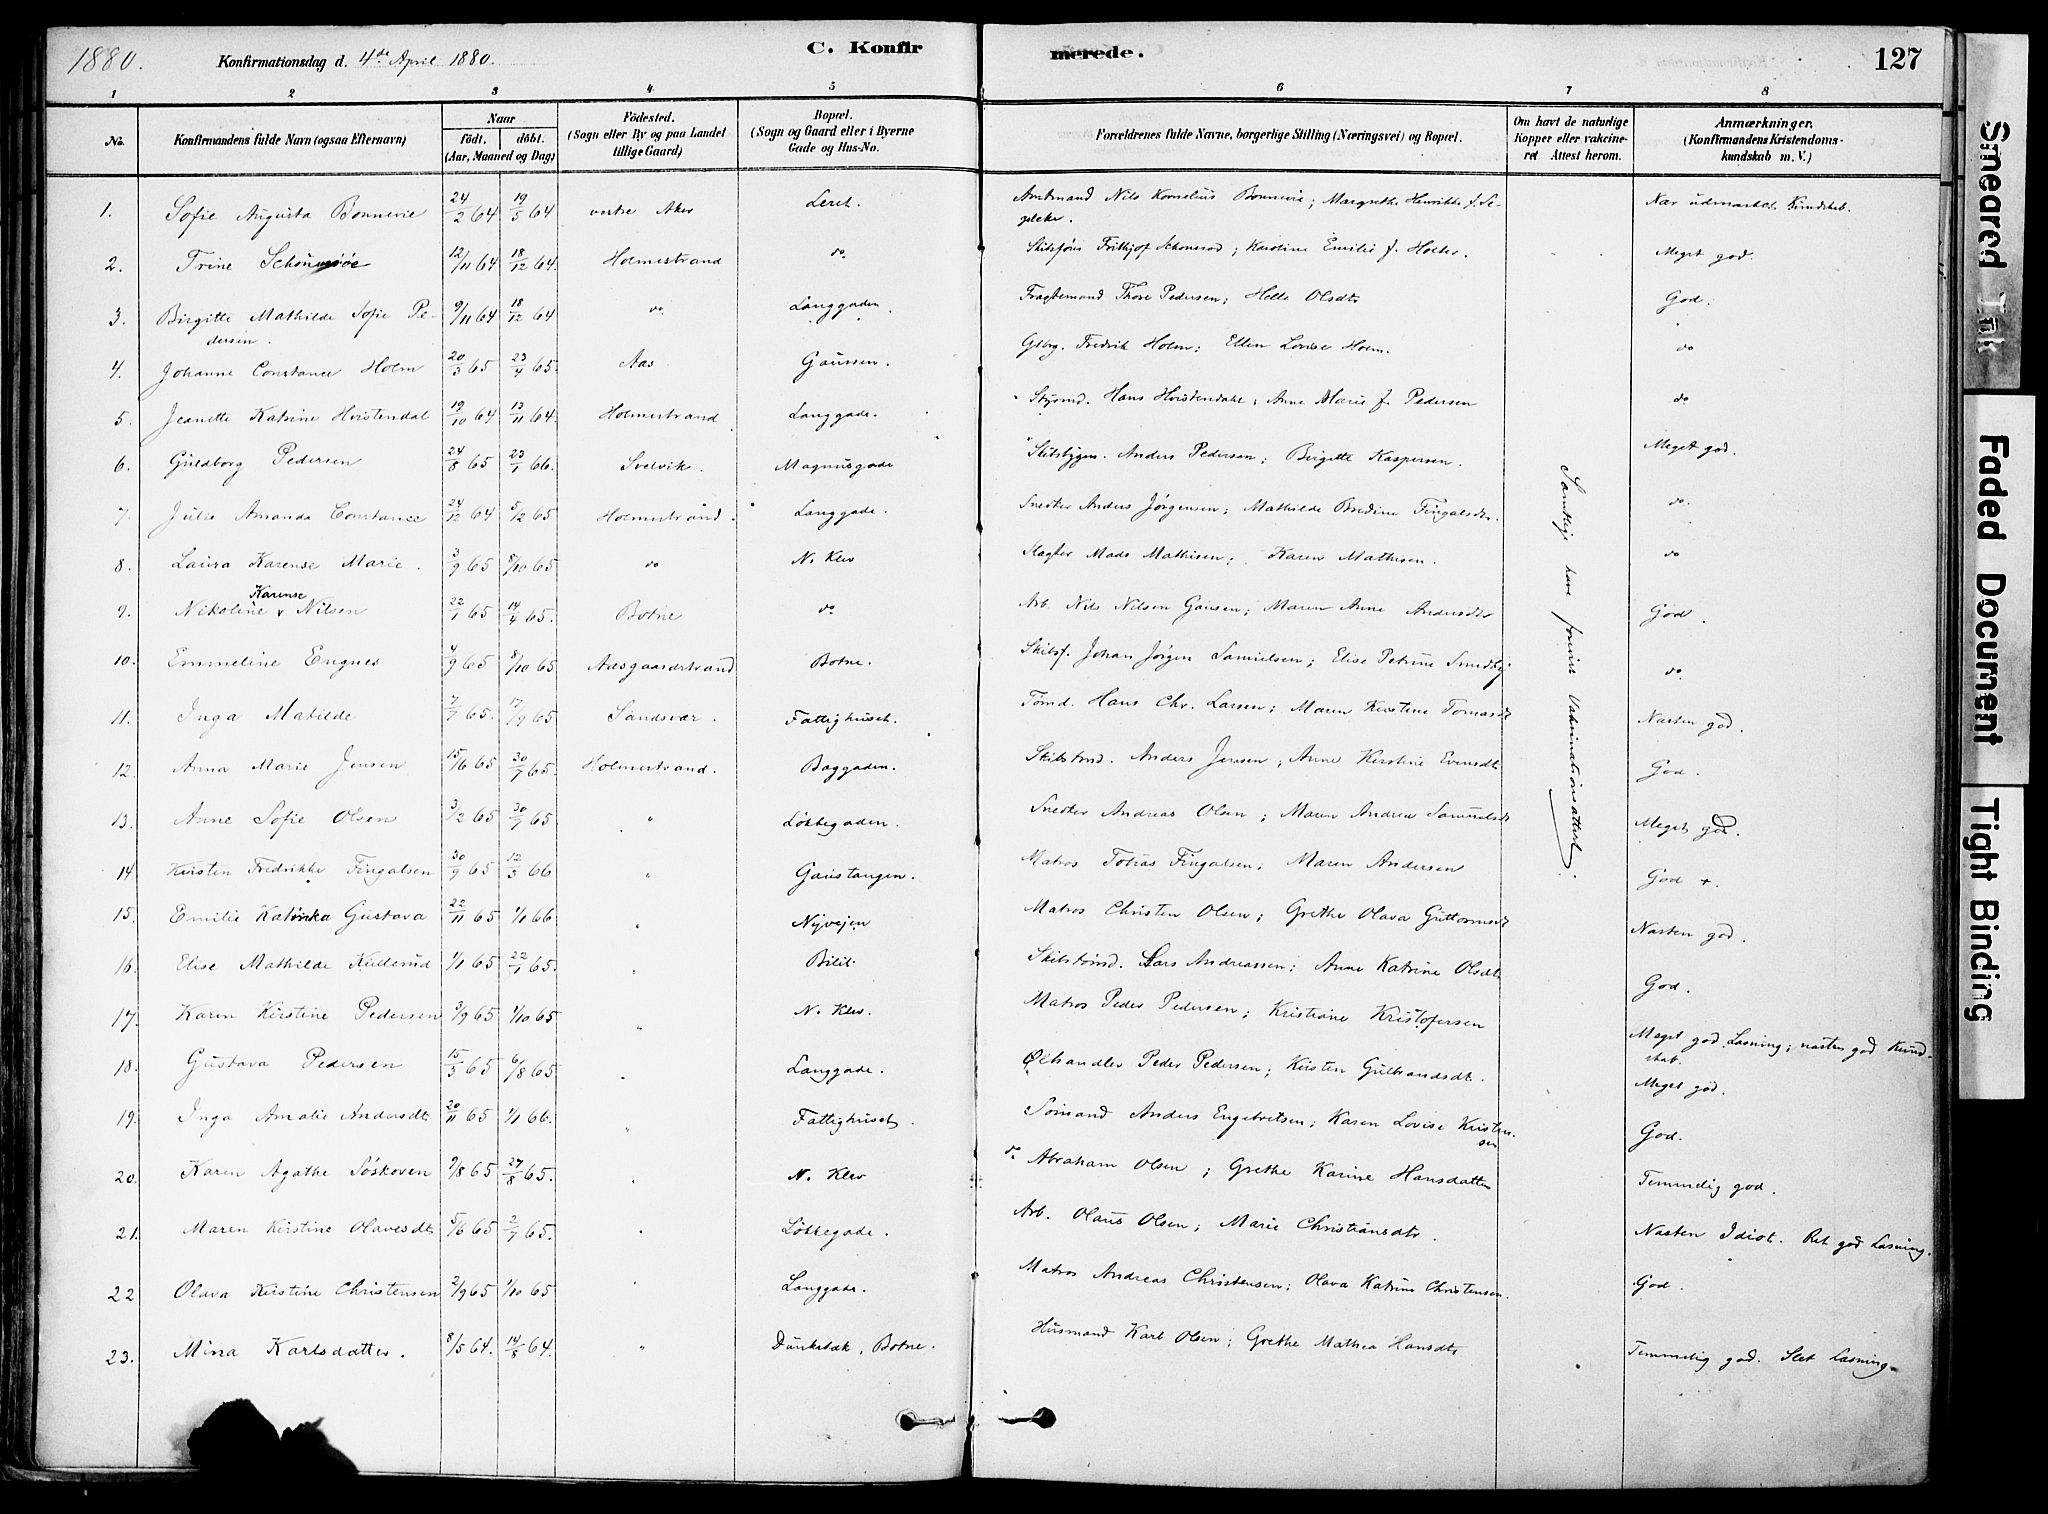 1880. Konfirmationsdag d. 4de April 1880. C. Konfirmerede. 127
1 2 3 4 5 6 7 8
No. Konfirmandens fulde Navn (ogsaa Efternavn) Naar födt. döbt. (Aar, Maaned og Dag) Födested. (Sogn eller By og paa Landet tillige Gaard) Bopæl. (Sogn og Gaard eller i Byerne Gade og Hus-No. Forældrenes fulde Navne, borgerlige Stilling (Næringsvei) og Bopæl. Om havt de naturlige Kopper eller vakcineret Attest herom. Anmærkninger. (Konfirmandens Kristendomskundskab m. V.)
1. Sofie Augusta Bonnevie 24/2 64 19/5 64 vestre Aker Leret. Amtmand Nils Kornelius Bonnevie; Margrethe Henrikke f. Segelcke. Nær udmærket Kundskab.
2. Trine 12/11 64 18/12 64. Holmestrand do Frithjof ; Karoline Emilie f. Holter. Meget god.
3. Birgitte Mathilde Sofie Pedersen. 9/11 64 18/12 64 do Langgaden. Fragtemand Thore Pedersen; Helle Olsdtr God.
4. Johanne Constance Holm 20/3 65 23/4 65. Aas Gaussen. Gsbrg. Fredrik Holm; Ellen Lovise Holm. do
5. Jeanette Katrine Hvistendal 19/10 64 13/11 64 Holmestrand Langgade. Styrmd. Hans Hvistendahl; Anne Marie f. Pedersen do
6. Guldborg Pedersen 24/8 65 23/1 66. Svelvik. Magnusgade Skibsbygm. Anders Pedersen; Birgitte Kaspersen. Meget god.
7. Julie Amanda Constance 24/12 64 5/2 65 Holmestrand. Langgade. Snedker Anders Jørgensen; Mathilde Bredine Fingalsdtr. do
8. Laura Karense Marie. 3/9 65 8/10 65 do N. Klev Slagter Mads Mathisen; Karen Mathisen. do
9. Nikoline Karense Nilsen 22/1 65 14/4 65. Botne do Arb. Nils Nilsen Gausen; Maren Anne Andersdtr God.
10. Emmeline Engnes 4/9 65 8/10 65 Aasgaardstrand Botne. Skibsf. Johan Jørgen Samuelsen; Elise Petrine Smedby do
11. Inga Matilde 7/7 65. 17/9 65 Sandsvær. Fattighuset. Tømd. Hans Chr. Larsen; Maren Kirstine Tomasdt Næsten god.
12. Anna Marie Jensen 15/6 65 30/7 65. Holmestrand. Baggaden. Skibstmd. Anders Jensen; Anne Kirstine Evensdt God.
13. Anne Sofie Olsen 3/2 65 30/7 65 " Løkkegaden. Snedker Andreas Olsen; Maren Andrea Samuelsdt Meget god.
14 Kirsten Fredrikke Fingalsen 30/9 65 12/3 66 " Gaustangen. Matros Tobias Fingalsen; Maren Andersen God +.
15. Emilie Katinka Gustava 22/11 65 1/1 66. " Nyvejen Matros Christen Olsen; Grethe Olava Guttormsdt Næsten god.
16. Elise Mathilde Kullerud 1/1 65 22/1 65. " Bilit. Skibstømd. Lars Andreassen; Anne Katrine Olsdt God.
17. Karen Kirstine Pedersen 3/9 65 1/10 65 " N. Klev. Matros Peder Pedersen; Kristiane Kristofersen Meget god Læsning; næsten god Kundskab.
18. Gustava Pedersen 15/5 65 6/8 65. " Langgade. Ølhandler Peder Pedersen; Kirsten Gulbrandsdt. Meget god.
19. Inga Amalie Andersdt 20/11 65 1/1 66. " Fattighuset. Sømand Anders Engebretsen; Karen Lovise Kristensen God.
20. Karen Agathe Søskoven 9/8 65 27/8 65. " N. Klev do Abraham Olsen; Grethe Karine Hansdatter Temmelig god.
21. Maren Kirstine Olavesdt 5/6 65 2/7 65. " Løkkegade. Arb. Olaus Olsen; Marie Christiansdtr. Næsten Idiot. Ret god Læsning.
22 Olava Kirstine Christensen 2/9 65 1/10 65 " Langgade. Matros Andreas Christensen; Olava Katrine Christensen. God.
23. Mina Karlsdatter. 8/5 64. 14/8 64. " , Botne. Husmand Karl Olsen; Grethe Mathea Hansdtr Temmelig god. Slet Læsning.
Samtlige have forevist Vakcinationsattest.
Smeared Ink
Faded Document
Tight Binding